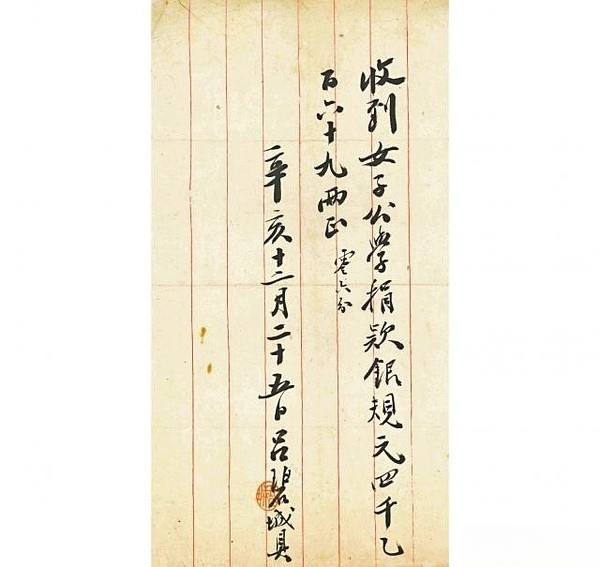 收到女子公學捐欵銀規元四千乙
百六十九兩正零六分
辛亥十二月二十五日呂碧城具